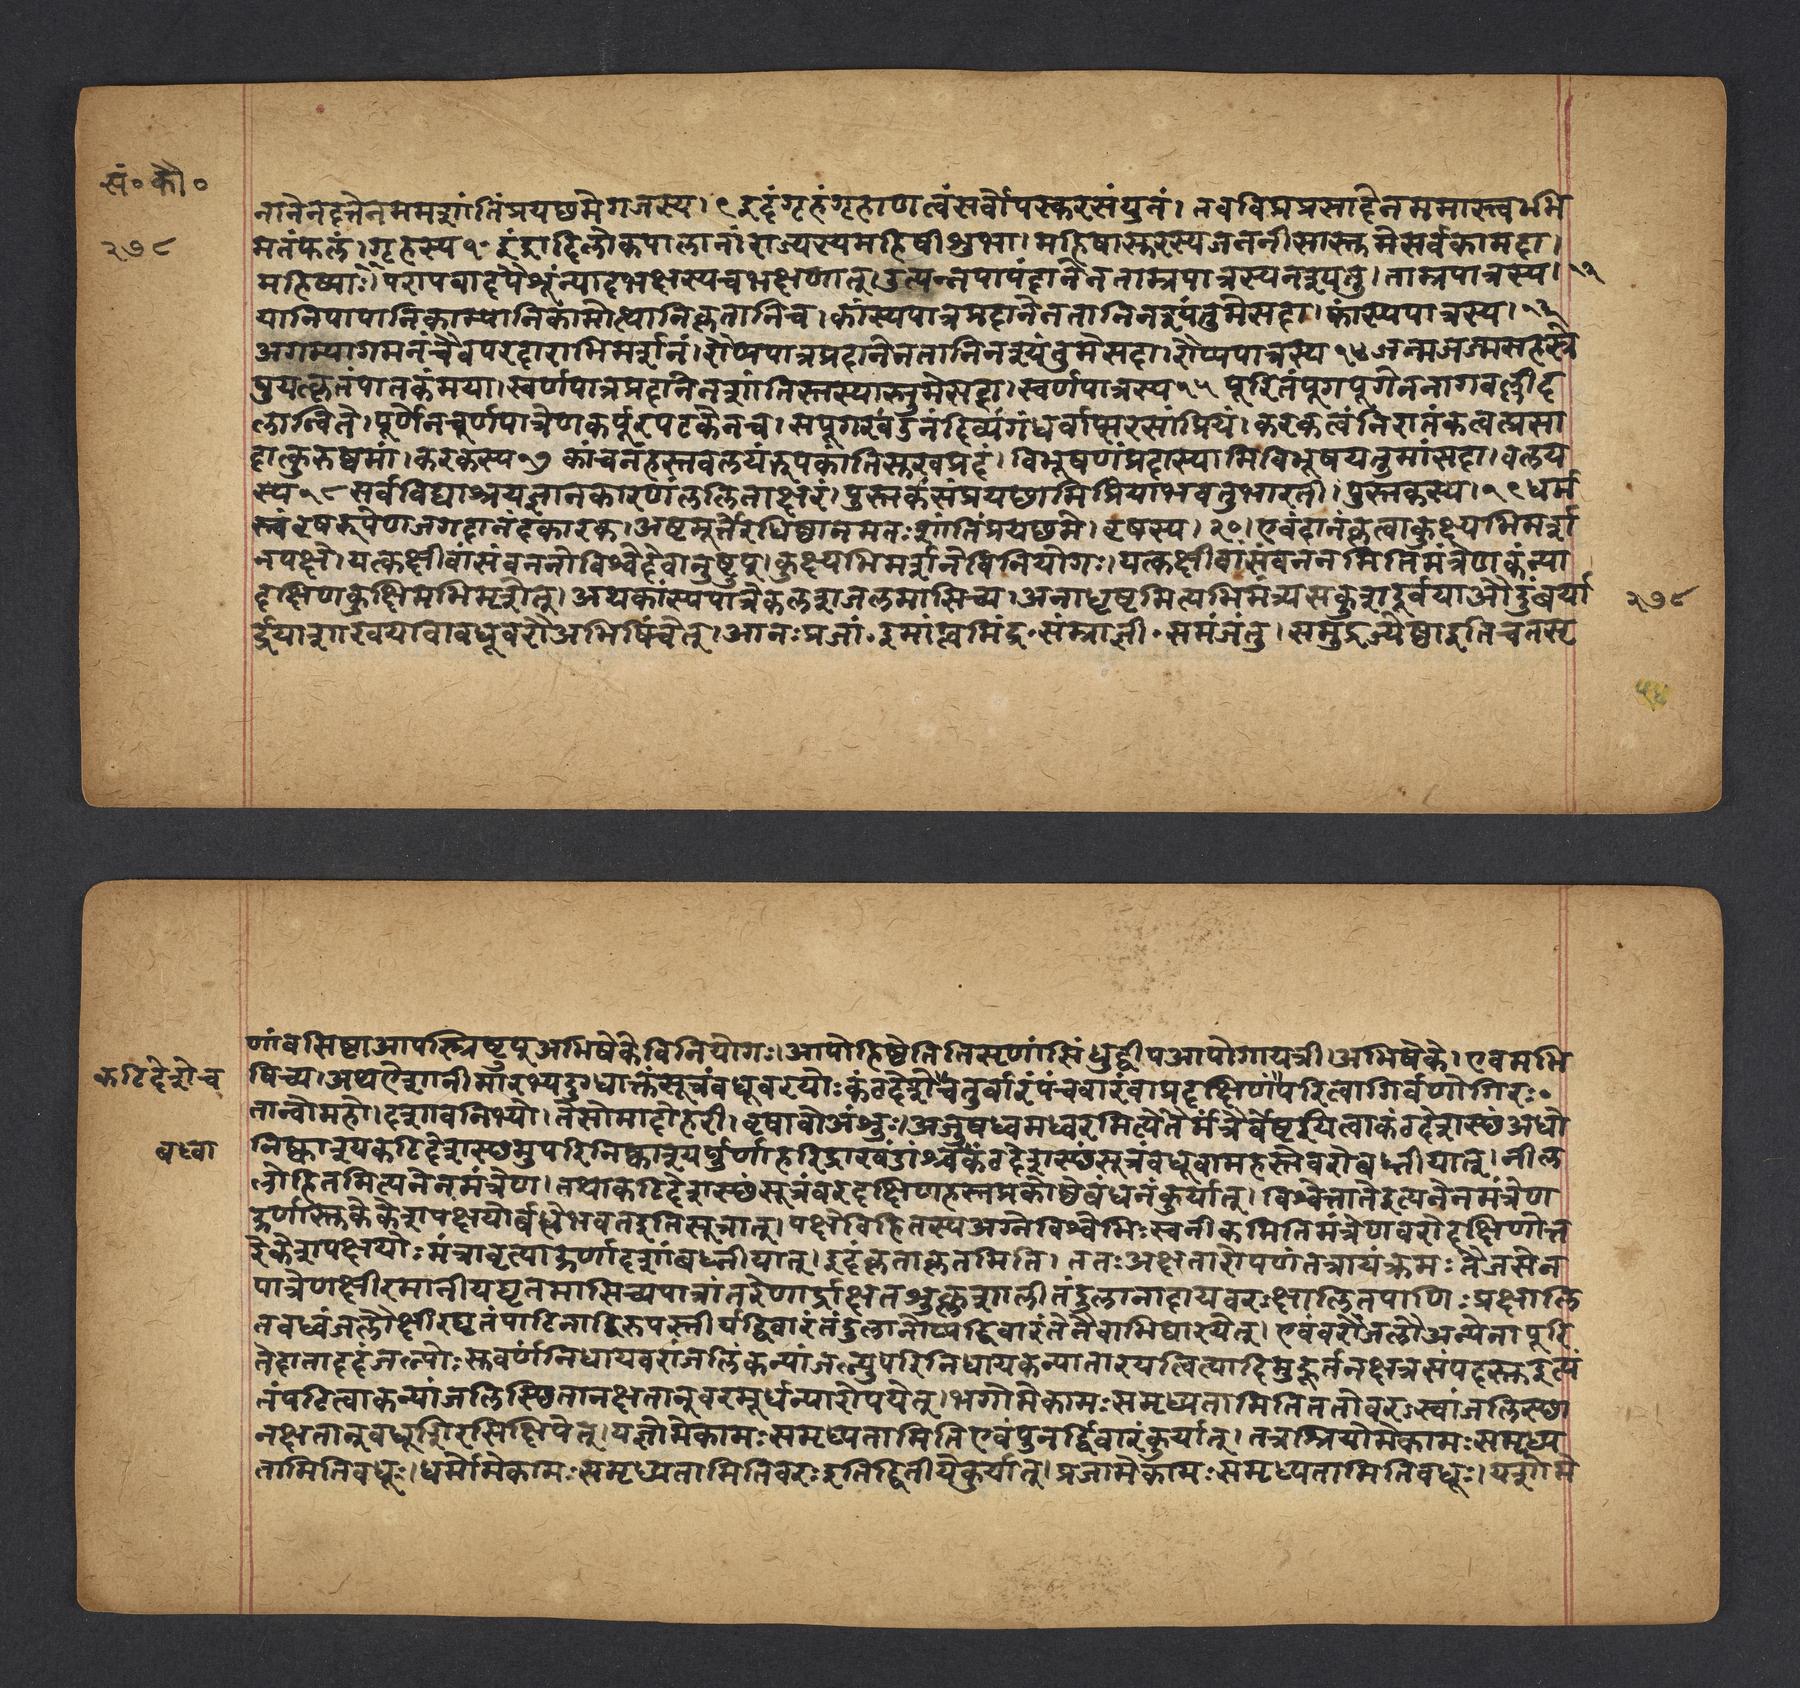 सं॰ कौ॰
२७८
नानेनदत्तेनममशांतिंप्रयछमेगजस्य।९इदंगृहंगृहाणत्वंसर्वोपस्करसंयुतं।तवविप्रप्रसादेनममास्त्वभि
मतंफलं।गृहस्य१॰इंद्रादिलोकपालानांराज्यस्यमहिषीशुभा।महिषास्तरस्यजननीसास्तुमेसर्वकामदा।
महिष्याः।परापवादपैशून्यादभक्षस्यचभक्षणात्।उत्पन्नपापंदानेनताम्रपात्रस्यनश्यतु।ताम्रपात्रस्य।१२
यानिपापानिकाम्यानिकामोत्थानिकृतानिच।कांस्यपात्रप्रदानेनतानिनश्यंतुमेसदा।कांस्यपात्रस्य।१३
अगम्यागमनंचैवपरदाराभिमर्शनं।रौप्यपात्रप्रदानेनतानिनश्यंतुमेसदा।रौप्यपात्रस्य१४जन्मजन्मसहस्रे
षुयत्कृतंपातकंमया।स्वर्णपात्रप्रदानेनशांतिस्तस्यास्तुमेसदा।स्वर्णपात्रस्य१५पूरितंपुगपूगेननागवल्लीद
लान्विते।पूर्णेनचूर्णपात्रेणकर्पूरपटकेनच।सपूगखंडनंदिव्यंगंधर्वाप्सरसांप्रियं।करकत्वंनिरातंकत्वत्प्रसा
दात्कुरुष्वमां।करकस्य१७कांचनंहस्तवलयंरूपकांतिसुखप्रदं।विभूषणंप्रदास्यामिविभूषयतुमांसदा।वलय
स्य१८सर्वविद्याश्रयज्ञानकारणंललिताक्षरं।पुस्तकंसंप्रयछामिप्रियाभवतुभारती।पुस्तकस्य।१९धर्म
स्त्वंवृषरूपेणजगदानंदकारक।अष्टमूर्त्तेरधिष्ठानमतःशांतिंप्रयछमे।वृषस्य।२०।एवंदानंकृत्वाकुक्ष्यभिमर्श
नपक्षे।यत्कक्षीवांसंवननोविश्वेदेवानुष्टुप्।कुक्ष्यभिमर्शनेविनियोगः।यत्कक्षीवांसंवननमितिमंत्रेणकन्या
दक्षिणकुक्षिमभिमृशेत्।अथकांस्यपात्रेकलशजलमासिच्य।अनाधृष्टमित्यभिमंत्र्यसकुशदूर्वयाऔदुंबर्या
र्द्रयाशाखयावावधूवरौअभिषिंचेत्।आनःप्रजां॰इमांत्वमिंद्र॰संम्राज्ञी॰समंजंतु।समुद्रज्येष्ठाइतिचतसृ
२७८
५४
णांवसिष्ठाआपस्त्रिष्टुप्अभिषेकेविनियोगः।आपोहिष्ठेतितिसृणांसिंधुद्वीपआपोगायत्री।अभिषेके।एवमभि
षिच्य।अथऐशानीमारभ्यदुग्धाक्तंसूत्रंवधूवरयोःकंठदेशेचतुर्वारंपंचवारंवाप्रदक्षिणंपरित्वागिर्वणोगिरः॰
कटिदेशेच
तान्वोमहो।दशावनिभ्यो।तेसोमादोहरी।वृषावोअंशुः।अजुषध्वमध्वरमित्येतैर्मंत्रैर्वेष्टयित्वाकंठदेशास्छंअधो
निष्काश्यकटिदेशस्छमुपरिनिष्काश्यर्णुर्णाहरिद्राखंडांश्चैकंठदेशस्छंसूत्रंवधूवामहस्तेवरोबध्नीयात्।नील
बध्वा
लोहितमित्यनेनमंत्रेण।तथाकटिदेशस्छंसूत्रंवरदक्षिणहस्तप्रकोष्ठेबंधनंकुर्यात्।विश्वेत्तातेइत्यनेनमंत्रेण
पात्रेणक्षीरमानीयघृतमासिच्यपात्रांतरेणार्द्राक्षतशुक्लशालीतंदुलानादायवरःक्षालितपाणिःप्रक्षालि
तेदातादृढंजल्योःसुवर्णंनिधायवरांजलिंकन्यांजल्युपरिनिधायकन्यातारयत्वित्यादिमुहूर्तनक्षत्रसंपदस्तुइत्यं
तंपठित्वाकन्यांजलिस्छितानक्षतान्वरमूर्धन्यारोपयेत्।भगोमेकामःसमृध्यतामितिततोवरःस्वांजलिस्छा
नक्षतान्वधूशिरसिक्षिपेत्।यज्ञोमेकामःसमृध्यतामितिएवंपुनर्द्विवारंकुर्यात्।तत्रश्रियोमेकामःसमृध्य
तामितिवधूः।धर्मोमेकामःसमृध्यतामितिवरःइतिद्वितीयेकुर्यात्।प्रजामेकामःसमृध्यतामितिवधूः।यशोमे